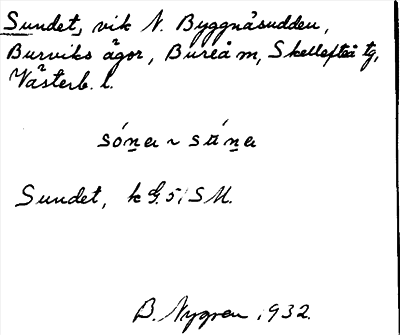 Sundet, vik N. Byggnåsudden,
Burviks ägor, Bureå m, Skellefteå tg,
Västerb. l.
Sundet, k G.5; SM.
B. Nygren 1932.